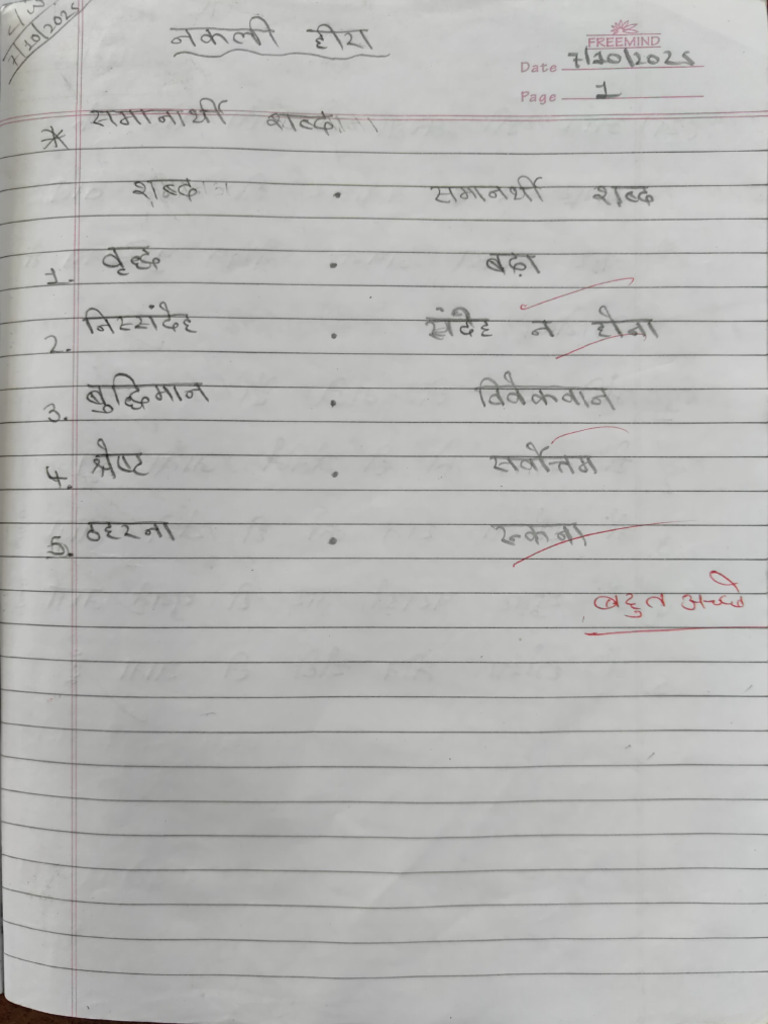 7/10/2025
नकली हीरा
FREEMIND
Date 7/10/2025
Page 1
* समानार्थी शब्द
शब्द • समानर्थी शब्द
1. वृद्ध • बढ़ा
2. निस्संदेह • संदेह न होना
3. बुद्धिमान • विवेकवान
4. श्रेष्ट • सर्वोत्तम
5. ठहरना • रूकना
बहुत अच्छे